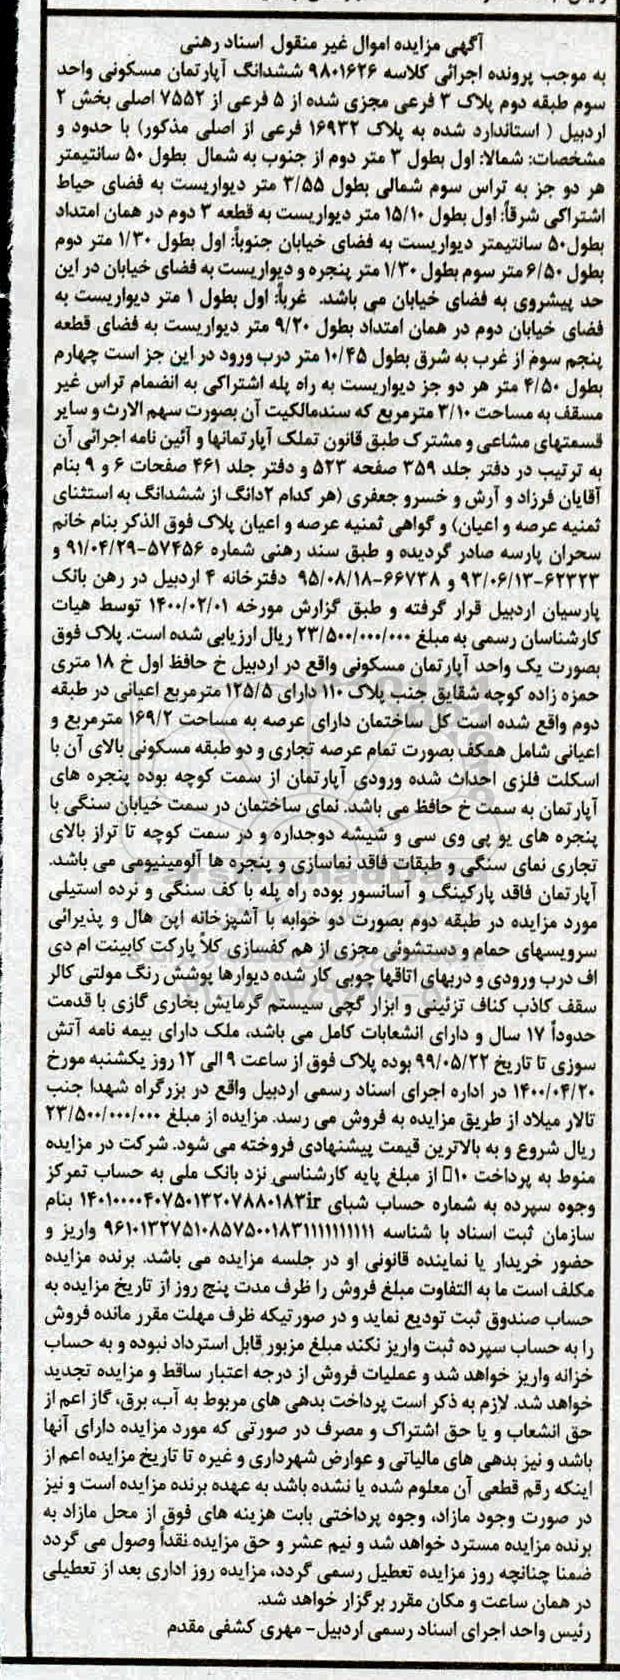 آگهی مزایده اموال غیر منقول اسناد رهنی
به موجب پرونده اجرائی کلاسه ۹۸۰۱۶۲۶ ششدانگ آپارتمان مسکونی واحد
سوم طبقه دوم پلاک ۳ فرعی مجزی شده از ۵ فرعی از ۷۵۵۲ اصلی بخش ۲
اردبیل ( استاندارد شده به پلاک ۱۶۹۳۲ فرعی از اصلی مذکور) با حدود و
مشخصات: شمالا: اول بطول ۳ متر دوم از جنوب به شمال بطول ۵۰ سانتیمتر
هر دو جز به تراس سوم شمالی بطول ۳/۵۵ متر دیواریست به فضای حیاط
اشتراکی شرقاً: اول بطول ۱۵/۱۰ متر دیواریست به قطعه ۳ دوم در همان امتداد
بطول۵۰ سانتیمتر دیواریست به فضای خیابان جنوباً: اول بطول ۱/۳۰ متر دوم
بطول ۶/۵۰ متر سوم بطول ۱/۳۰ متر پنجره و دیواریست به فضای خیابان در این
حد پیشروی به فضای خیابان می باشد. غرباً: اول بطول ۱ متر دیواریست به
فضای خیابان دوم در همان امتداد بطول ۹/۲۰ متر دیواریست به فضای قطعه
پنجم سوم از غرب به شرق بطول ۱۰/۴۵ متر درب ورود در این جز است چهارم
بطول ۴/۵۰ متر هر دو جز دیواریست به راه پله اشتراکی به انضمام تراس غیر
مسقف به مساحت ۳/۱۰ مترمربع که سندمالکیت آن بصورت سهم الارث و سایر
قسمتهای مشاعی و مشترک طبق قانون تملک آپارتمانها و آئین نامه اجرائی آن
به ترتیب در دفتر جلد ۳۵۹ صفحه ۵۲۳ و دفتر جلد ۴۶۱ صفحات ۶ و ۹ بنام
آقایان فرزاد و آرش و خسرو جعفری (هر کدام ۲دانگ از ششدانگ به استثنای
ثمنیه عرصه و اعیان) و گواهی ثمنیه عرصه و اعیان پلاک فوق الذکر بنام خانم
سحران پارسه صادر گردیده و طبق سند رهنی شماره ۵۷۴۵۶-۹۱/۰۴/۲۹ و
۶۲۳۲۳-۹۳/۰۶/۱۳ و ۶۶۷۳۸-۹۵/۰۸/۱۸ دفترخانه ۴ اردبیل در رهن بانک
پارسیان اردبیل قرار گرفته و طبق گزارش مورخه ۱۴۰۰/۰۲/۰۱ توسط هیات
کارشناسان رسمی به مبلغ ۲۳/۵۰۰/۰۰۰/۰۰۰ ریال ارزیابی شده است. پلاک فوق
بصورت یک واحد آپارتمان مسکونی واقع در اردبیل خ حافظ اول خ ۱۸ متری
حمزه زاده کوچه شقایق جنب پلاک ۱۱۰ دارای ۱۲۵/۵ مترمربع اعیانی در طبقه
دوم واقع شده است کل ساختمان دارای عرصه به مساحت ۱۶۹/۲ مترمربع و
اعیانی شامل همکف بصورت تمام عرصه تجاری و دو طبقه مسکونی بالای آن با
اسکلت فلزی احداث شده ورودی آپارتمان از سمت کوچه بوده پنجره های
آپارتمان به سمت خ حافظ می باشد. نمای ساختمان در سمت خیابان سنگی با
پنجره های یو پی وی سی و شیشه دوجداره و در سمت کوچه تا تراز بالای
تجاری نمای سنگی و طبقات فاقد نماسازی و پنجره ها آلومینیومی می باشد.
آپارتمان فاقد پارکینگ و آسانسور بوده راه پله با کف سنگی و نرده استیلی
مورد مزایده در طبقه دوم بصورت دو خوابه با آشپزخانه اپن هال و پذیرائی
سرویسهای حمام و دستشوئی مجزی از هم کفسازی کلاً پارکت کابینت ام دی
اف درب ورودی و دربهای اتاقها چوبی کار شده دیوارها پوشش رنگ مولتی کالر
سقف کاذب کناف تزئینی و ابزار گچی سیستم گرمایش بخاری گازی با قدمت
حدوداً ۱۷ سال و دارای انشعابات کامل می باشد، ملک دارای بیمه نامه آتش
سوزی تا تاریخ ۹۹/۰۵/۲۲ بوده پلاک فوق از ساعت ۹ الی ۱۲ روز یکشنبه مورخ
۱۴۰۰/۰۴/۲۰ در اداره اجرای اسناد رسمی اردبیل واقع در بزرگراه شهدا جنب
تالار میلاد از طریق مزایده به فروش می رسد. مزایده از مبلغ ۲۳/۵۰۰/۰۰۰/۰۰۰
ریال شروع و به بالاترین قیمت پیشنهادی فروخته می شود. شرکت در مزایده
منوط به پرداخت ۱۰ از مبلغ پایه کارشناسی نزد بانک ملی به حساب تمرکز
وجوه سپرده به شماره حساب شبای بنام
سازمان ثبت اسناد با شناسه واریز و
حضور خریدار یا نماینده قانونی او در جلسه مزایده می باشد. برنده مزایده
مکلف است ما به التفاوت مبلغ فروش را ظرف مدت پنج روز از تاریخ مزایده به
حساب صندوق ثبت تودیع نماید و در صورتیکه ظرف مهلت مقرر مانده فروش
را به حساب سپرده ثبت واریز نکند مبلغ مزبور قابل استرداد نبوده و به حساب
خزانه واریز خواهد شد و عملیات فروش از درجه اعتبار ساقط و مزایده تجدید
خواهد شد. لازم به ذکر است پرداخت بدهی های مربوط به آب، برق، گاز اعم از
حق انشعاب و یا حق اشتراک و مصرف در صورتی که مورد مزایده دارای آنها
باشد و نیز بدهی های مالیاتی و عوارض شهرداری و غیره تا تاریخ مزایده اعم از
اینکه رقم قطعی آن معلوم شده یا نشده باشد به عهده برنده مزایده است و نیز
در صورت وجود مازاد، وجوه پرداختی بابت هزینه های فوق از محل مازاد به
برنده مزایده مسترد خواهد شد و نیم عشر و حق مزایده نقداً وصول می گردد
ضمنا چنانچه روز مزایده تعطیل رسمی گردد، مزایده روز اداری بعد از تعطیلی
در همان ساعت و مکان مقرر برگزار خواهد شد.
رئیس واحد اجرای اسناد رسمی اردبیل- مهری کشفی مقدم